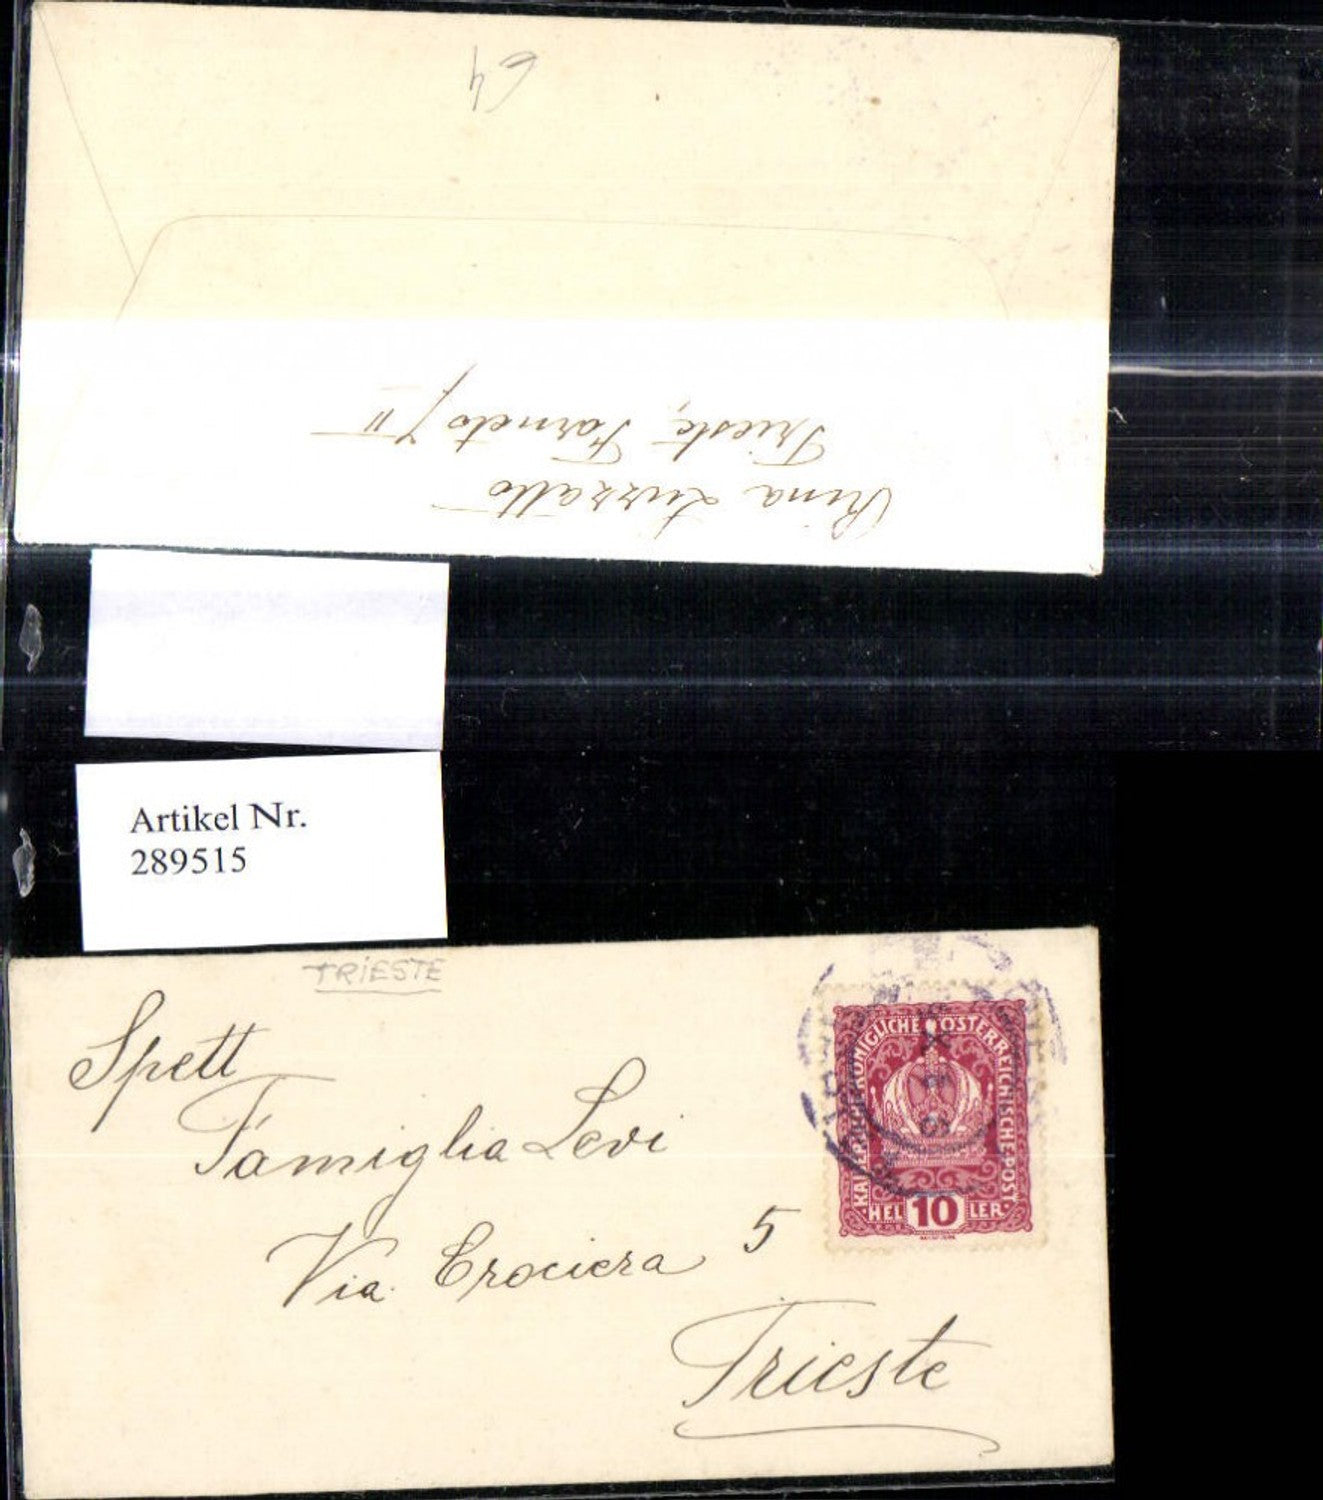 64
Rina Luzzatto
Trieste, Farneto 7 II
Artikel Nr.
289515
TRIESTE
Spett
Famiglia Levi
Via Crociera 5
Trieste
KAISERLICHKÖNIGLICHE ÖSTERREICHISCHE POST
HELLER
10